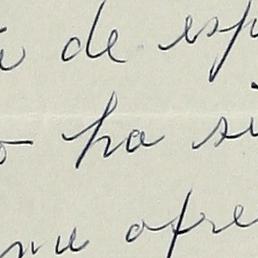 de esp
ha si
me ofre